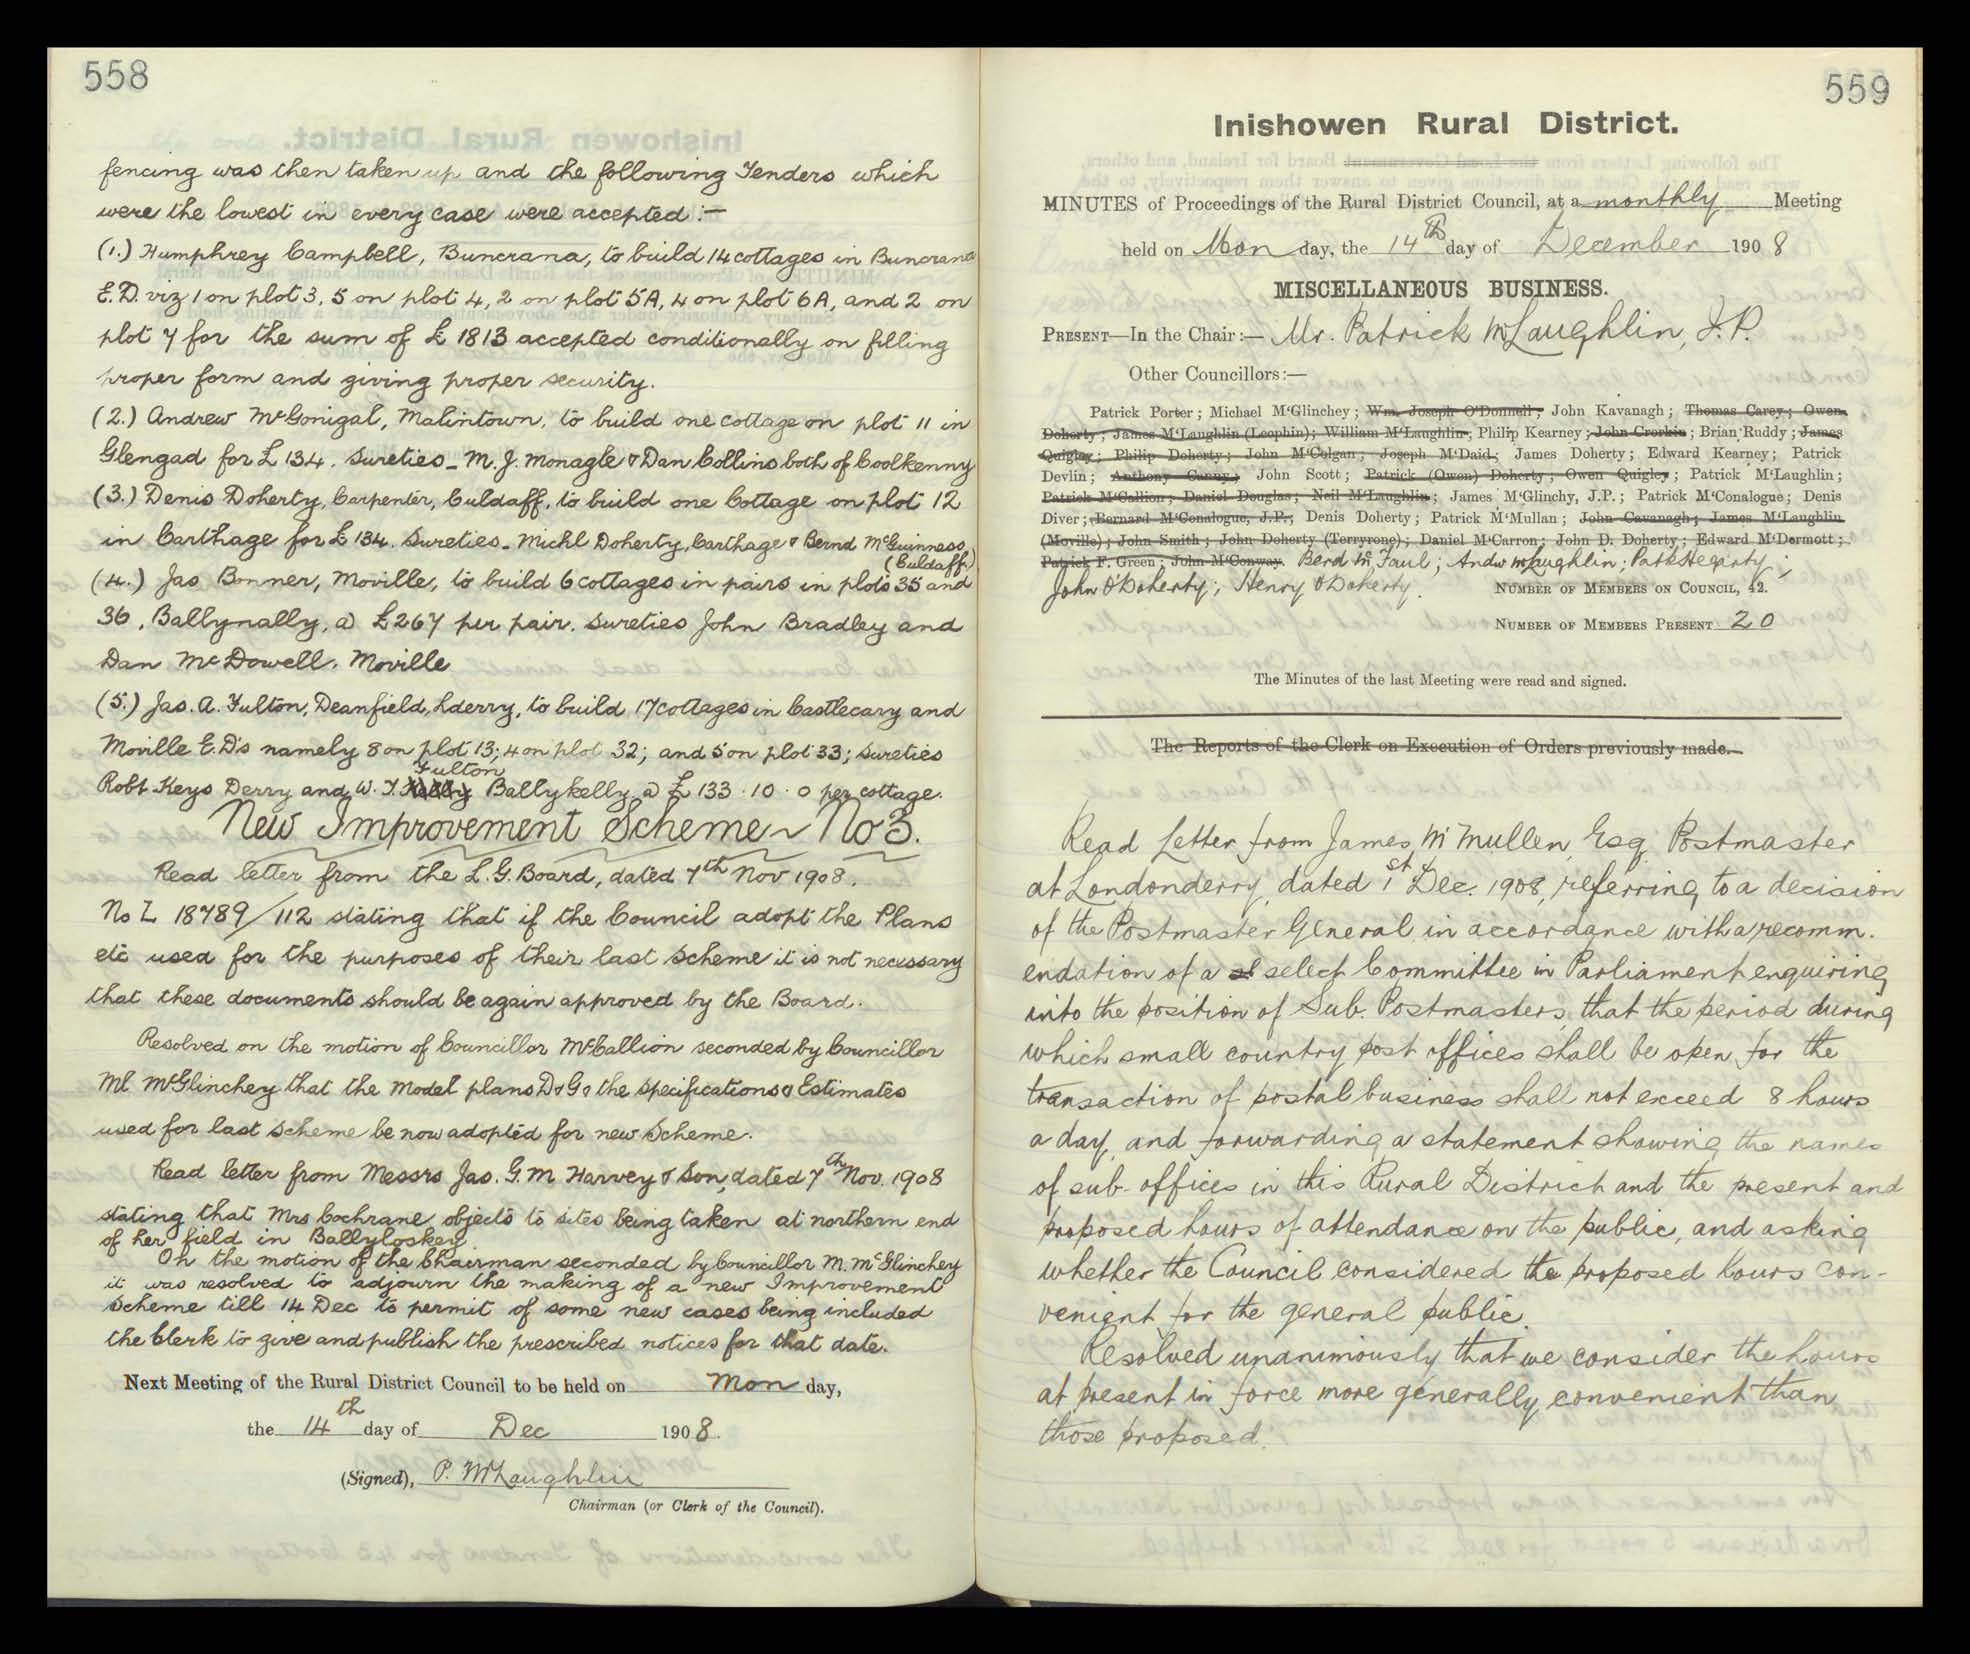 558
fencing was then taken up and the following Tenders which
were the lowest in every case were accepted :—
(1.) Humphrey Campbell, Buncrana, to build 14 cottages in Buncrana
E.D. viz 1 on plot 3, 5 on plot 4, 2 on plot 5A, 4 on plot 6A, and 2 on
plot 7 for the sum of £1813 accepted conditionally on filling
proper form and giving proper security.
(2.) Andrew McGonigal, Malintown, to build one cottage on plot 11 in
Glengad for £134. Sureties - M. J. Monagle & Dan Collins both of Coolkenny
(3.) Denis Doherty, Carpenter, Culdaff, to build one Cottage on plot 12
in Carthage for £134. Sureties - Michl Doherty, Carthage & Bernd McGuinness
(Culdaff)
(4.) Jas Bonner, Moville, to build 6 cottages in pairs in plots 35 and
36, Ballynally, @ £267 per pair. Sureties John Bradley and
Dan McDowell. Moville
(5.) Jas. A. Fulton, Deanfield, Lderry, to build 17 cottages in Castlecary and
Moville E.D's namely 8 on plot 13; 4 on plot 32; and 5 on plot 33; sureties
Fulton
Robt Keys Derry and W. T. Ballykelly @ £133 . 10 . 0 per cottage.
New Improvement Scheme ~ No 3.
Read letter from the L.G. Board, dated 7th Nov 1908.
No L 18789/112 stating that if the Council adopt the Plans
etc used for the purposes of their last Scheme it is not necessary
that these documents should be again approved by the Board.
Resolved on the motion of Councillor McCallion seconded by Councillor
Ml McGlinchey that the Model plans D & G & the specifications & Estimates
used for last Scheme be now adopted for new Scheme.
Read letter from Messrs Jas. G. M. Harvey & Son, dated 7th Nov. 1908
stating that Mrs Cochrane objects to sites being taken at northern end
of her field in Ballyloskey
On the motion of the Chairman seconded by Councillor M. McGlinchey
it was resolved to adjourn the making of a new Improvement
Scheme till 14 Dec to permit of some new cases being included
the Clerk to give and publish the prescribed notices for that date.
Next Meeting of the Rural District Council to be held on Mon day,
the 14th day of Dec 1908.
(Signed), P. McLaughlin
Chairman (or Clerk of the Council).
559
Inishowen Rural District.
MINUTES of Proceedings of the Rural District Council, at a monthly Meeting
held on Mon day, the 14th day of December 1908
MISCELLANEOUS BUSINESS.
PRESENT—In the Chair :— Mr. Patrick McLaughlin, J.P.
Other Councillors:—
Patrick Porter; Michael M'Glinchey; Wm. Joseph O'Donnell; John Kavanagh; Thomas Carey; Owen
Doherty; James M'Laughlin (Leophin); William M'Laughlin; Philip Kearney; John Crerkin; Brian Ruddy; James
Quigley; Philip Doherty; John M'Colgan; Joseph M'Daid; James Doherty; Edward Kearney; Patrick
Devlin; Anthony Canny; John Scott; Patrick (Owen) Doherty; Owen Quigley; Patrick M'Laughlin;
Patrick M'Callion; Daniel Douglas; Neil M'Laughlin; James M'Glinchy, J.P.; Patrick M'Conalogue; Denis
Diver; Bernard M'Conalogue, J.P.; Denis Doherty; Patrick M'Mullan; John Cavanagh; James M'Laughlin
(Moville); John Smith; John Doherty (Terryrone); Daniel M'Carron; John D. Doherty; Edward M'Dermott;
Patrick F. Green; John M'Conway. Bernd McFaul; Andw McLaughlin; Patk Hegarty;
John O'Doherty; Henry O'Doherty.
NUMBER OF MEMBERS ON COUNCIL, 42.
NUMBER OF MEMBERS PRESENT 20
The Minutes of the last Meeting were read and signed.
The Reports of the Clerk on Execution of Orders previously made.—
Read Letter from James McMullen, Esq Postmaster
at Londonderry, dated 1st Dec. 1908, referring to a decision
of the Postmaster General in accordance with a recomm.
endation of a select Committee in Parliament enquiring
into the position of Sub. Postmasters, that the period during
which small country post offices shall be open for the
transaction of postal business shall not exceed 8 hours
a day, and forwarding a statement showing the names
of sub-offices in this Rural District and the present and
proposed hours of attendance on the public, and asking
whether the Council considered the proposed hours con-
venient for the general public.
Resolved unanimously that we consider the hours
at present in force more generally convenient than
those proposed.